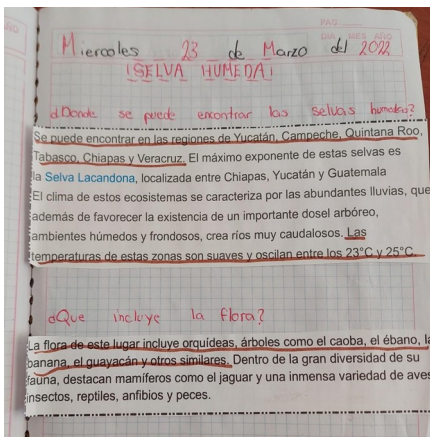 PAG
DIA MES AÑO
Miercoles 23 de Marzo del 2022
¡SELVA HUMEDA!
¿Donde se puede encontrar las selvas humedas?
Se puede encontrar en las regiones de Yucatán, Campeche, Quintana Roo,
Tabasco, Chiapas y Veracruz. El máximo exponente de estas selvas es
la Selva Lacandona, localizada entre Chiapas, Yucatán y Guatemala
El clima de estos ecosistemas se caracteriza por las abundantes lluvias, que
además de favorecer la existencia de un importante dosel arbóreo,
ambientes húmedos y frondosos, crea ríos muy caudalosos. Las
temperaturas de estas zonas son suaves y oscilan entre los 23°C y 25°C.
¿Que incluye la flora?
La flora de este lugar incluye orquídeas, árboles como el caoba, el ébano, la
banana, el guayacán y otros similares. Dentro de la gran diversidad de su
fauna, destacan mamíferos como el jaguar y una inmensa variedad de aves
insectos, reptiles, anfibios y peces.